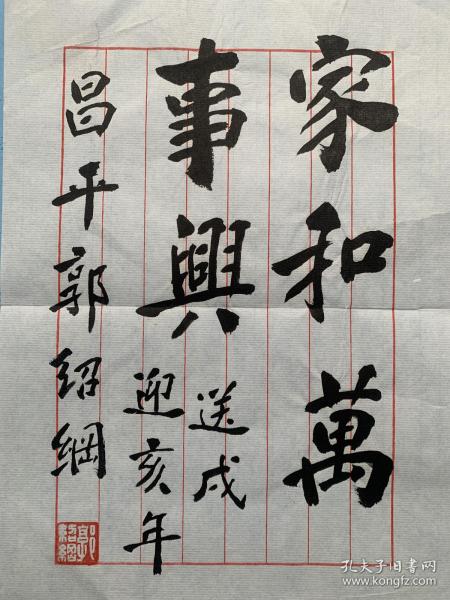 家和萬
事興
送戌
迎亥年
昌平郭紹綱
郭紹綱
孔夫子旧书网
www.kongfz.com